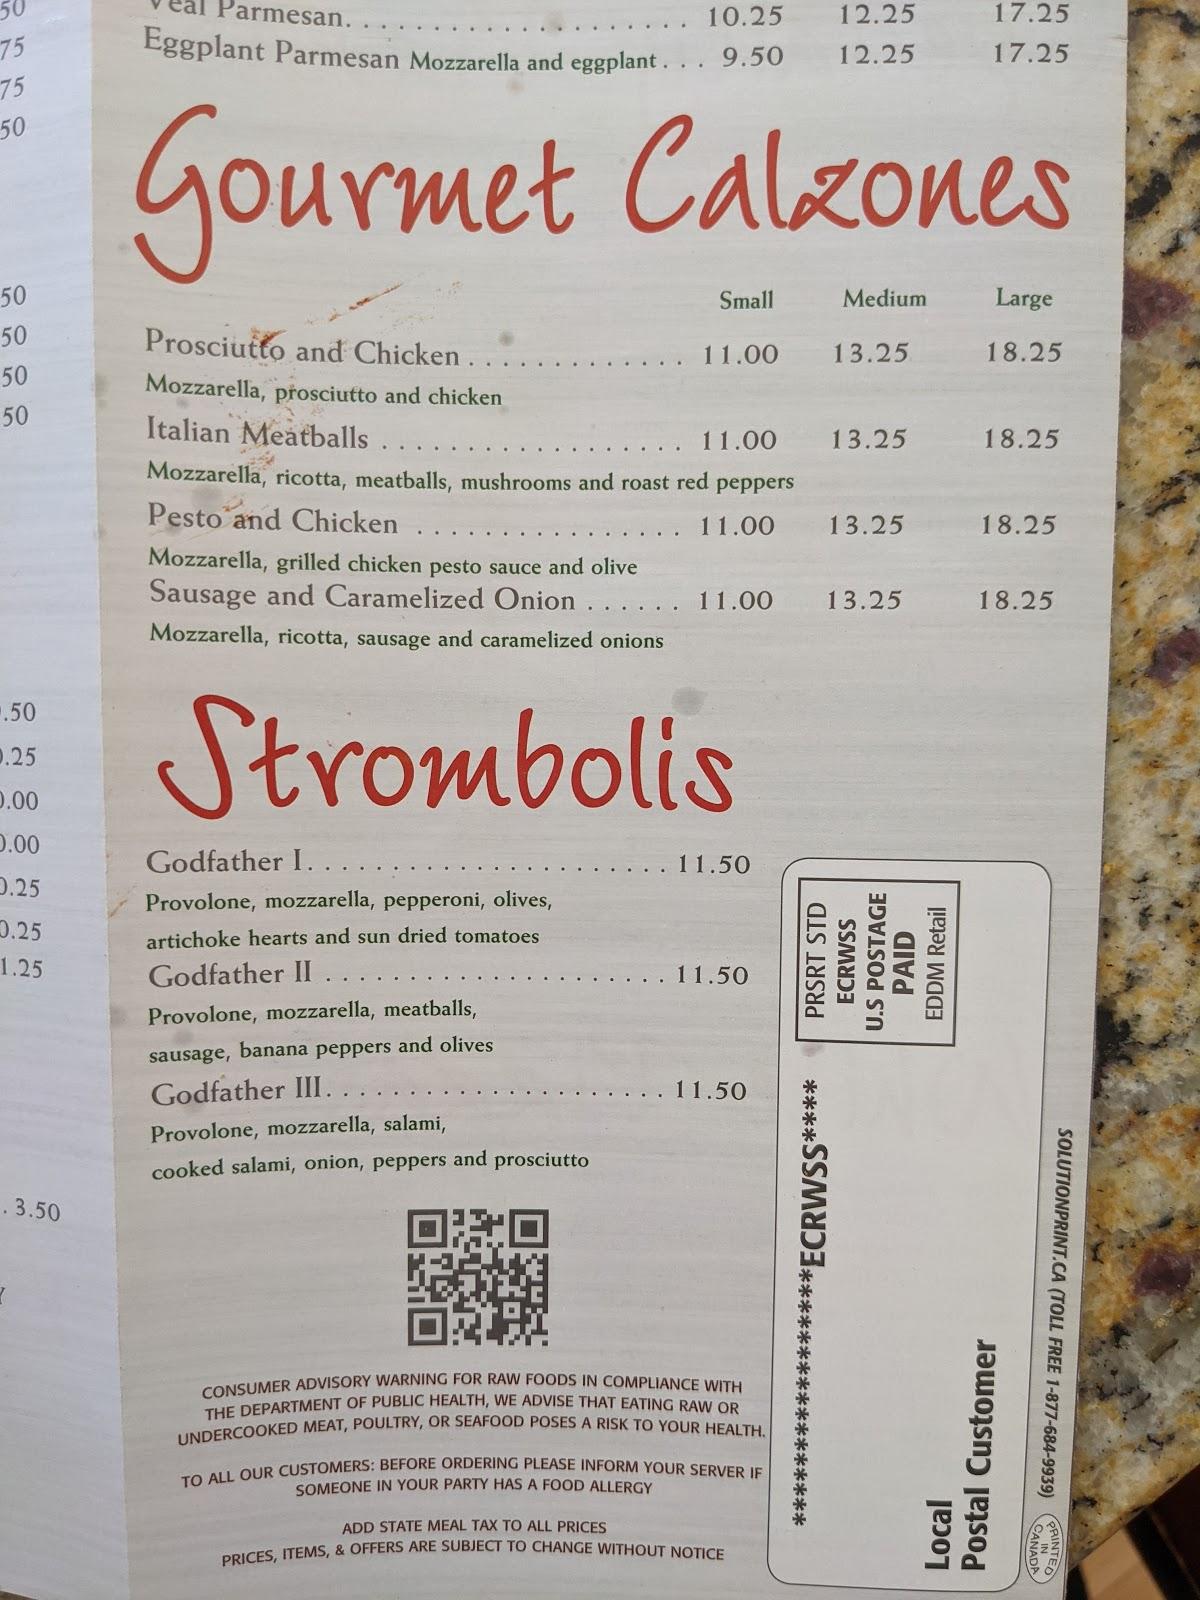 50
75
75
50
50
50
50
50
.50
.25
.00
.00
.25
.25
1.25
. 3.50
Veal Parmesan. . . . . . . . . . . . . . . . . . . 10.25 12.25 17.25
Eggplant Parmesan Mozzarella and eggplant . . . 9.50 12.25 17.25
Gourmet Calzones
Small Medium Large
Prosciutto and Chicken . . . . . . . . . . . . . 11.00 13.25 18.25
Mozzarella, prosciutto and chicken
Italian Meatballs . . . . . . . . . . . . . . . . . . 11.00 13.25 18.25
Mozzarella, ricotta, meatballs, mushrooms and roast red peppers
Pesto and Chicken . . . . . . . . . . . . . . . . 11.00 13.25 18.25
Mozzarella, grilled chicken pesto sauce and olive
Sausage and Caramelized Onion . . . . . . 11.00 13.25 18.25
Mozzarella, ricotta, sausage and caramelized onions
Strombolis
Godfather I. . . . . . . . . . . . . . . . . . . . . . 11.50
Provolone, mozzarella, pepperoni, olives,
artichoke hearts and sun dried tomatoes
Godfather II . . . . . . . . . . . . . . . . . . . . . 11.50
Provolone, mozzarella, meatballs,
sausage, banana peppers and olives
Godfather III. . . . . . . . . . . . . . . . . . . . . 11.50
Provolone, mozzarella, salami,
cooked salami, onion, peppers and prosciutto
CONSUMER ADVISORY WARNING FOR RAW FOODS IN COMPLIANCE WITH
THE DEPARTMENT OF PUBLIC HEALTH, WE ADVISE THAT EATING RAW OR
UNDERCOOKED MEAT, POULTRY, OR SEAFOOD POSES A RISK TO YOUR HEALTH.
TO ALL OUR CUSTOMERS: BEFORE ORDERING PLEASE INFORM YOUR SERVER IF
SOMEONE IN YOUR PARTY HAS A FOOD ALLERGY
ADD STATE MEAL TAX TO ALL PRICES
PRICES, ITEMS, & OFFERS ARE SUBJECT TO CHANGE WITHOUT NOTICE
PRSRT STD
ECRWSS
U.S POSTAGE
PAID
EDDM Retail
**********************ECRWSS****
Local
Postal Customer
SOLUTIONPRINT.CA (TOLL FREE 1-877-684-9939)
PRINTED
IN
CANADA